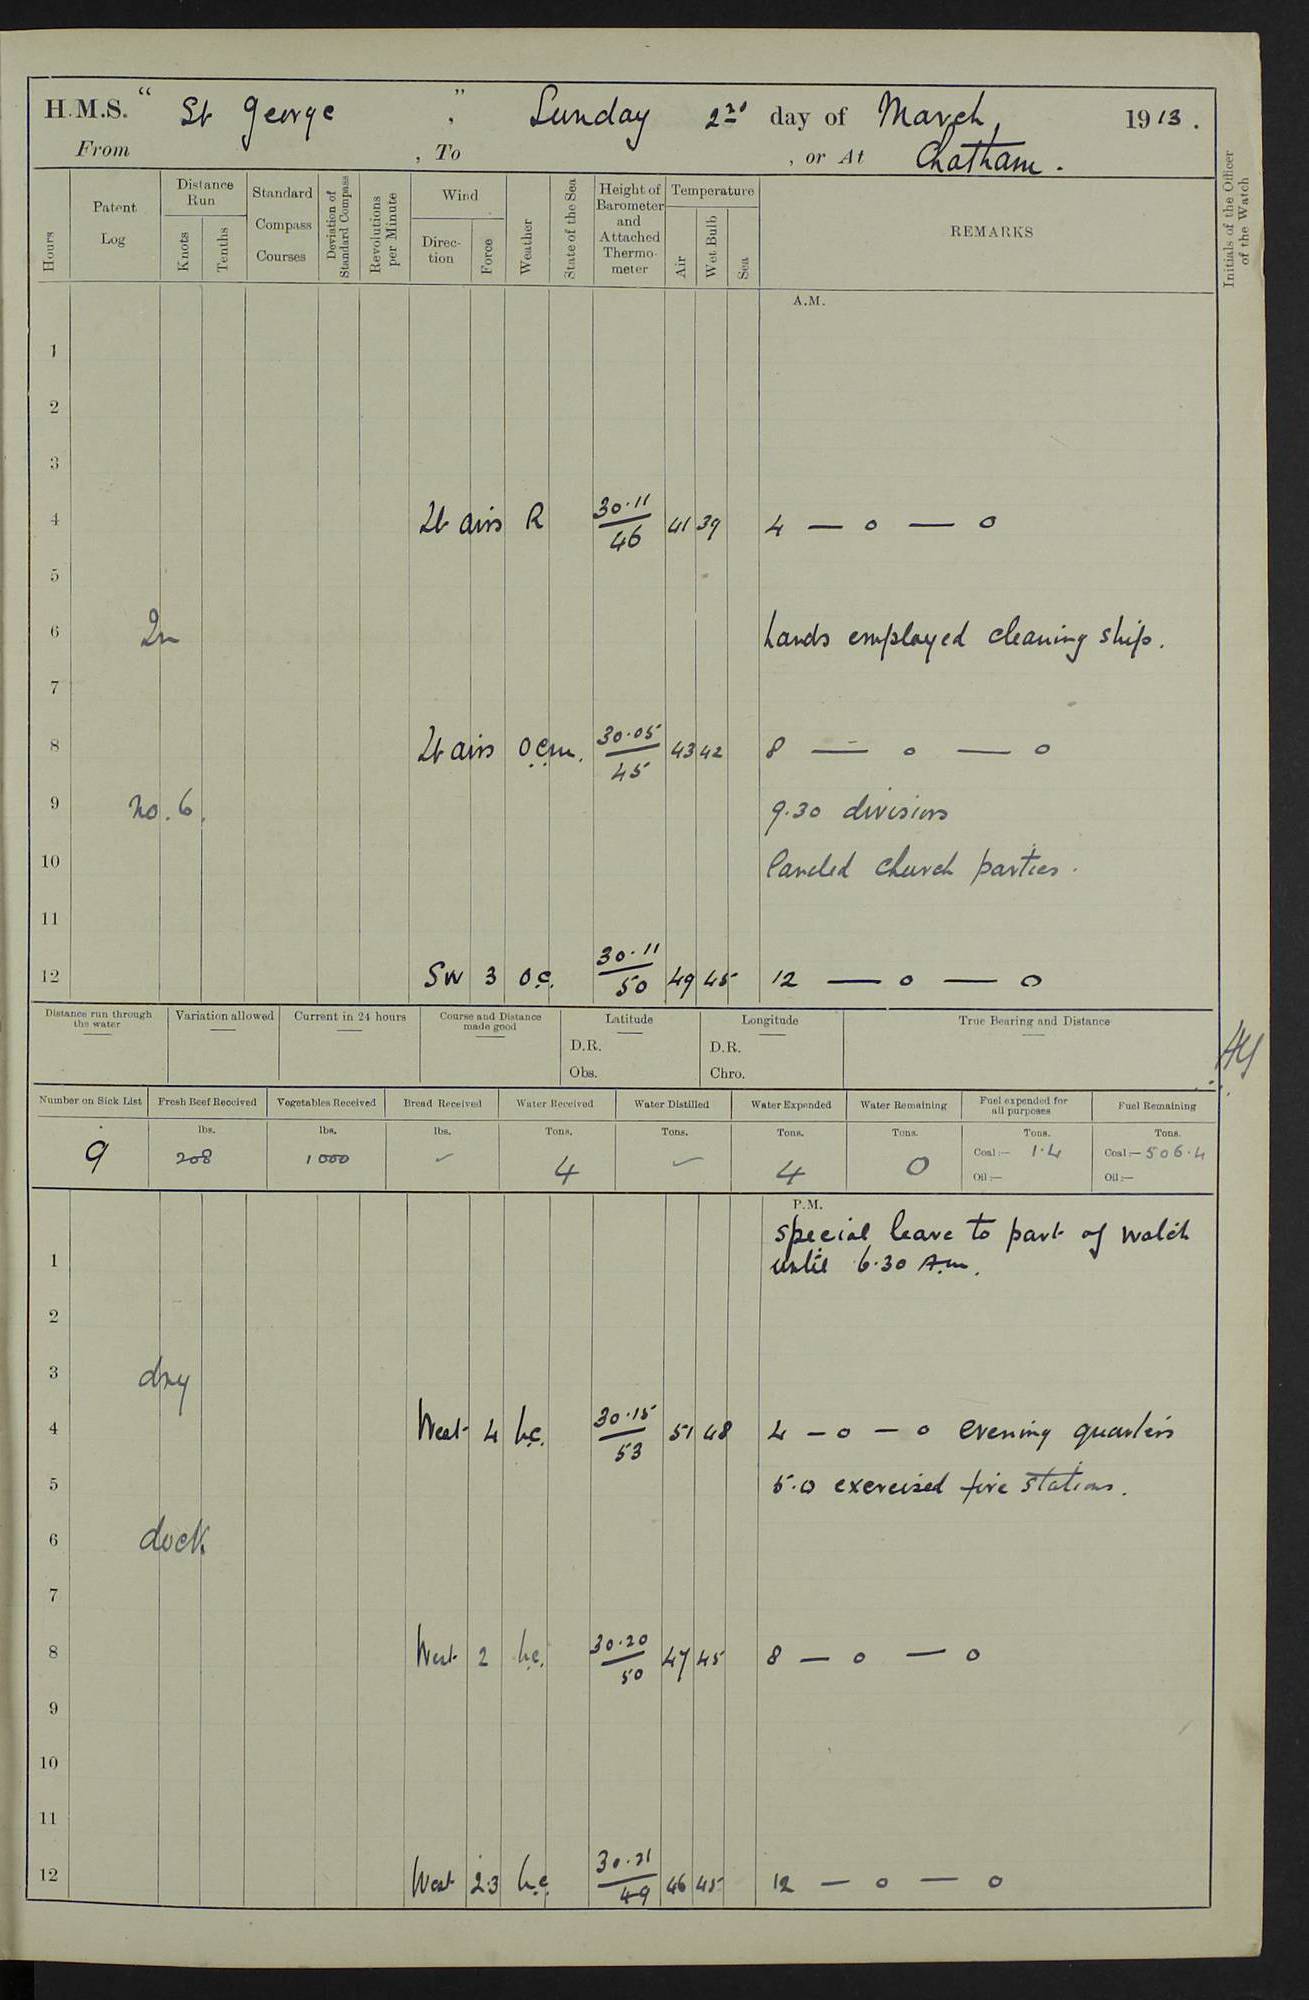 H.M.S. " St George ", Sunday 2nd day of March, 1913.
From , To , or At Chatham.
Hours
Patent Log
Distance Run
Knots
Tenths
Standard Compass Courses
Deviation of Standard Compass
Revolutions per Minute
Wind
Direction
Force
Weather
State of the Sea
Height of Barometer and Attached Thermometer
Temperature
Air
Wet Bulb
Sea
REMARKS
Initials of the Officer of the Watch
A.M.
1
2
3
4 Lt airs R 30.11/46 41 39 4 — o — o
5
6 In hands employed cleaning ship.
7
8 Lt airs o.c.m. 30.05/45 43 42 8 — o — o
9 No. 6. 9.30 divisions
10 landed church parties.
11
12 SW 3 o.c. 30.11/50 49 45 12 — o — o
Distance run through the water
Variation allowed
Current in 24 hours
Course and Distance made good
Latitude
D.R.
Obs.
Longitude
D.R.
Chro.
True Bearing and Distance
Number on Sick List
Fresh Beef Received
Vegetables Received
Bread Received
Water Received
Water Distilled
Water Expended
Water Remaining
Fuel expended for all purposes
Fuel Remaining
lbs. lbs. lbs. Tons. Tons. Tons. Tons. Tons. Tons.
9 208 1000 ✓ 4 ✓ 4 0 Coal:— 1.4 Coal:— 506.4
Oil:— Oil:—
P.M.
special leave to part of watch
1 until 6.30 A.m.
2
3 dry
4 West 4 b.c. 30.15/53 51 48 4 — o — o evening quarters
5 5.0 exercised fire stations.
6 dock
7
8 West 2 b.c. 30.20/50 47 45 8 — o — o
9
10
11
12 West 2.3 b.c. 30.21/49 46 45 12 — o — o